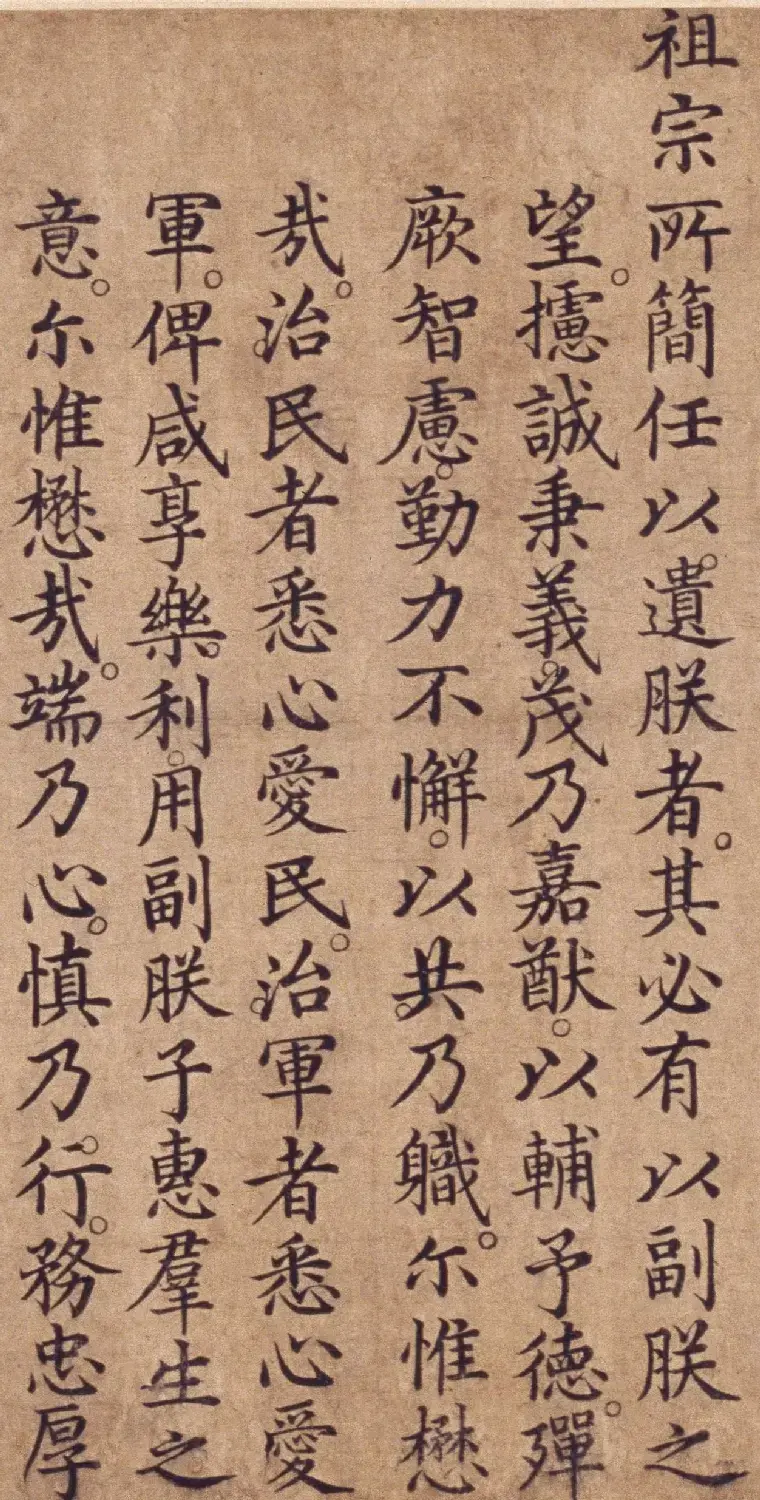 祖宗所簡任以遺朕者其必有以副朕之
望攄誠秉義茂乃嘉猷以輔予德殫
厥智慮勤力不懈以共乃職尒惟懋
哉治民者悉心愛民治軍者悉心愛
軍俾咸享樂利用副朕子惠羣生之
意尒惟懋哉端乃心慎乃行務忠厚